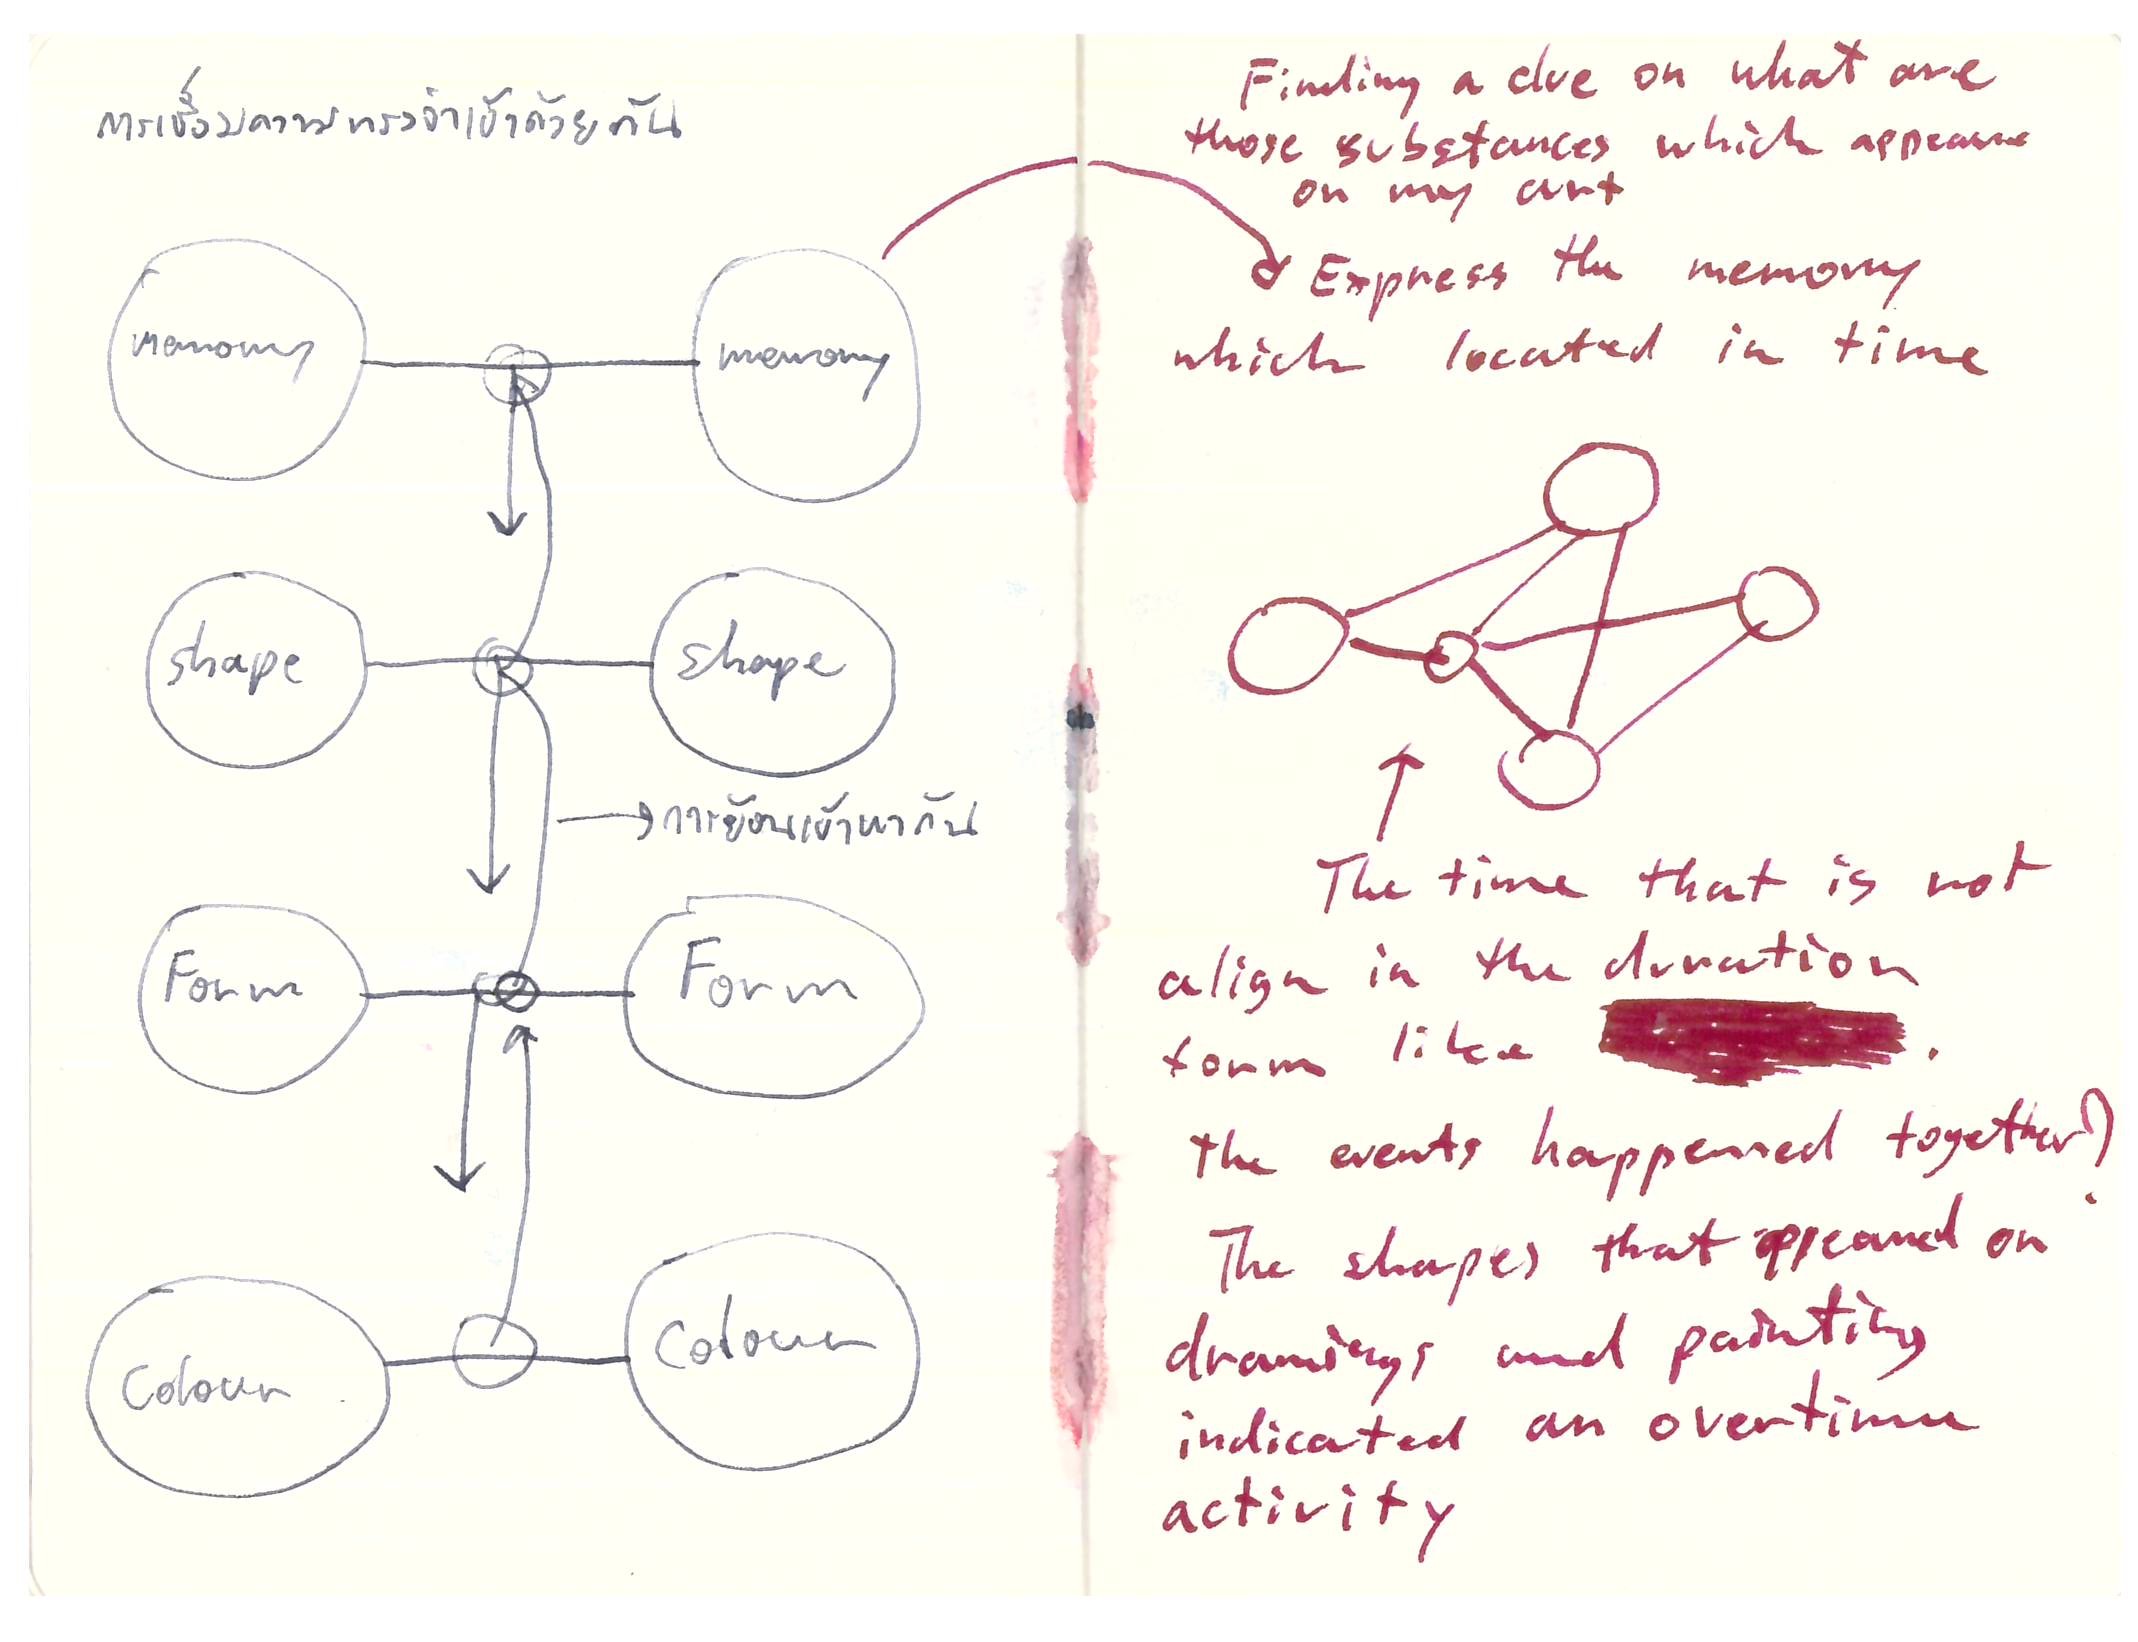 การเชื่อมความทรงจำเข้าด้วยกัน
memory
memory
shape
shape
การย้อนเข้าหากัน
Form
Form
Colour
Colour
Finding a clue on what are
those substances which appeare
on my art
Express the memory
which located in time
The time that is not
align in the duration
form like .
the events happened together?
The shapes that appeared on
drawings and painting
indicated an overtime
activity